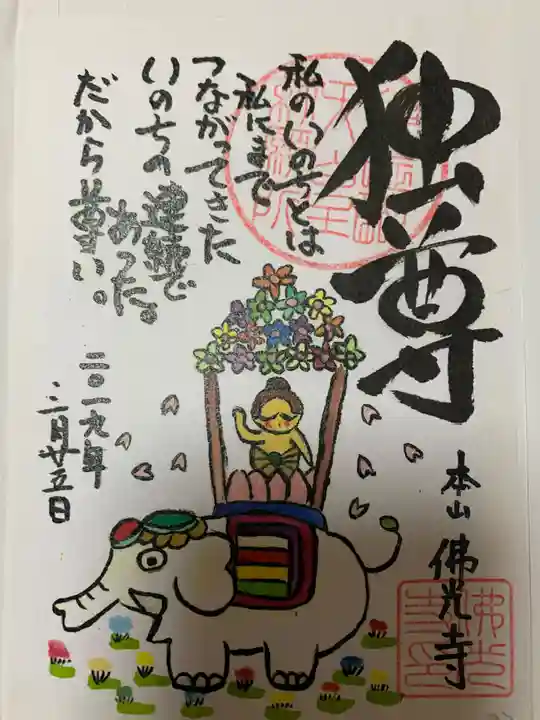 独尊
私のいのちとは
私にまで
つながってきた
いのちの連続で
あった。
だから尊い。
二〇一九年
三月廿五日
本山 佛光寺